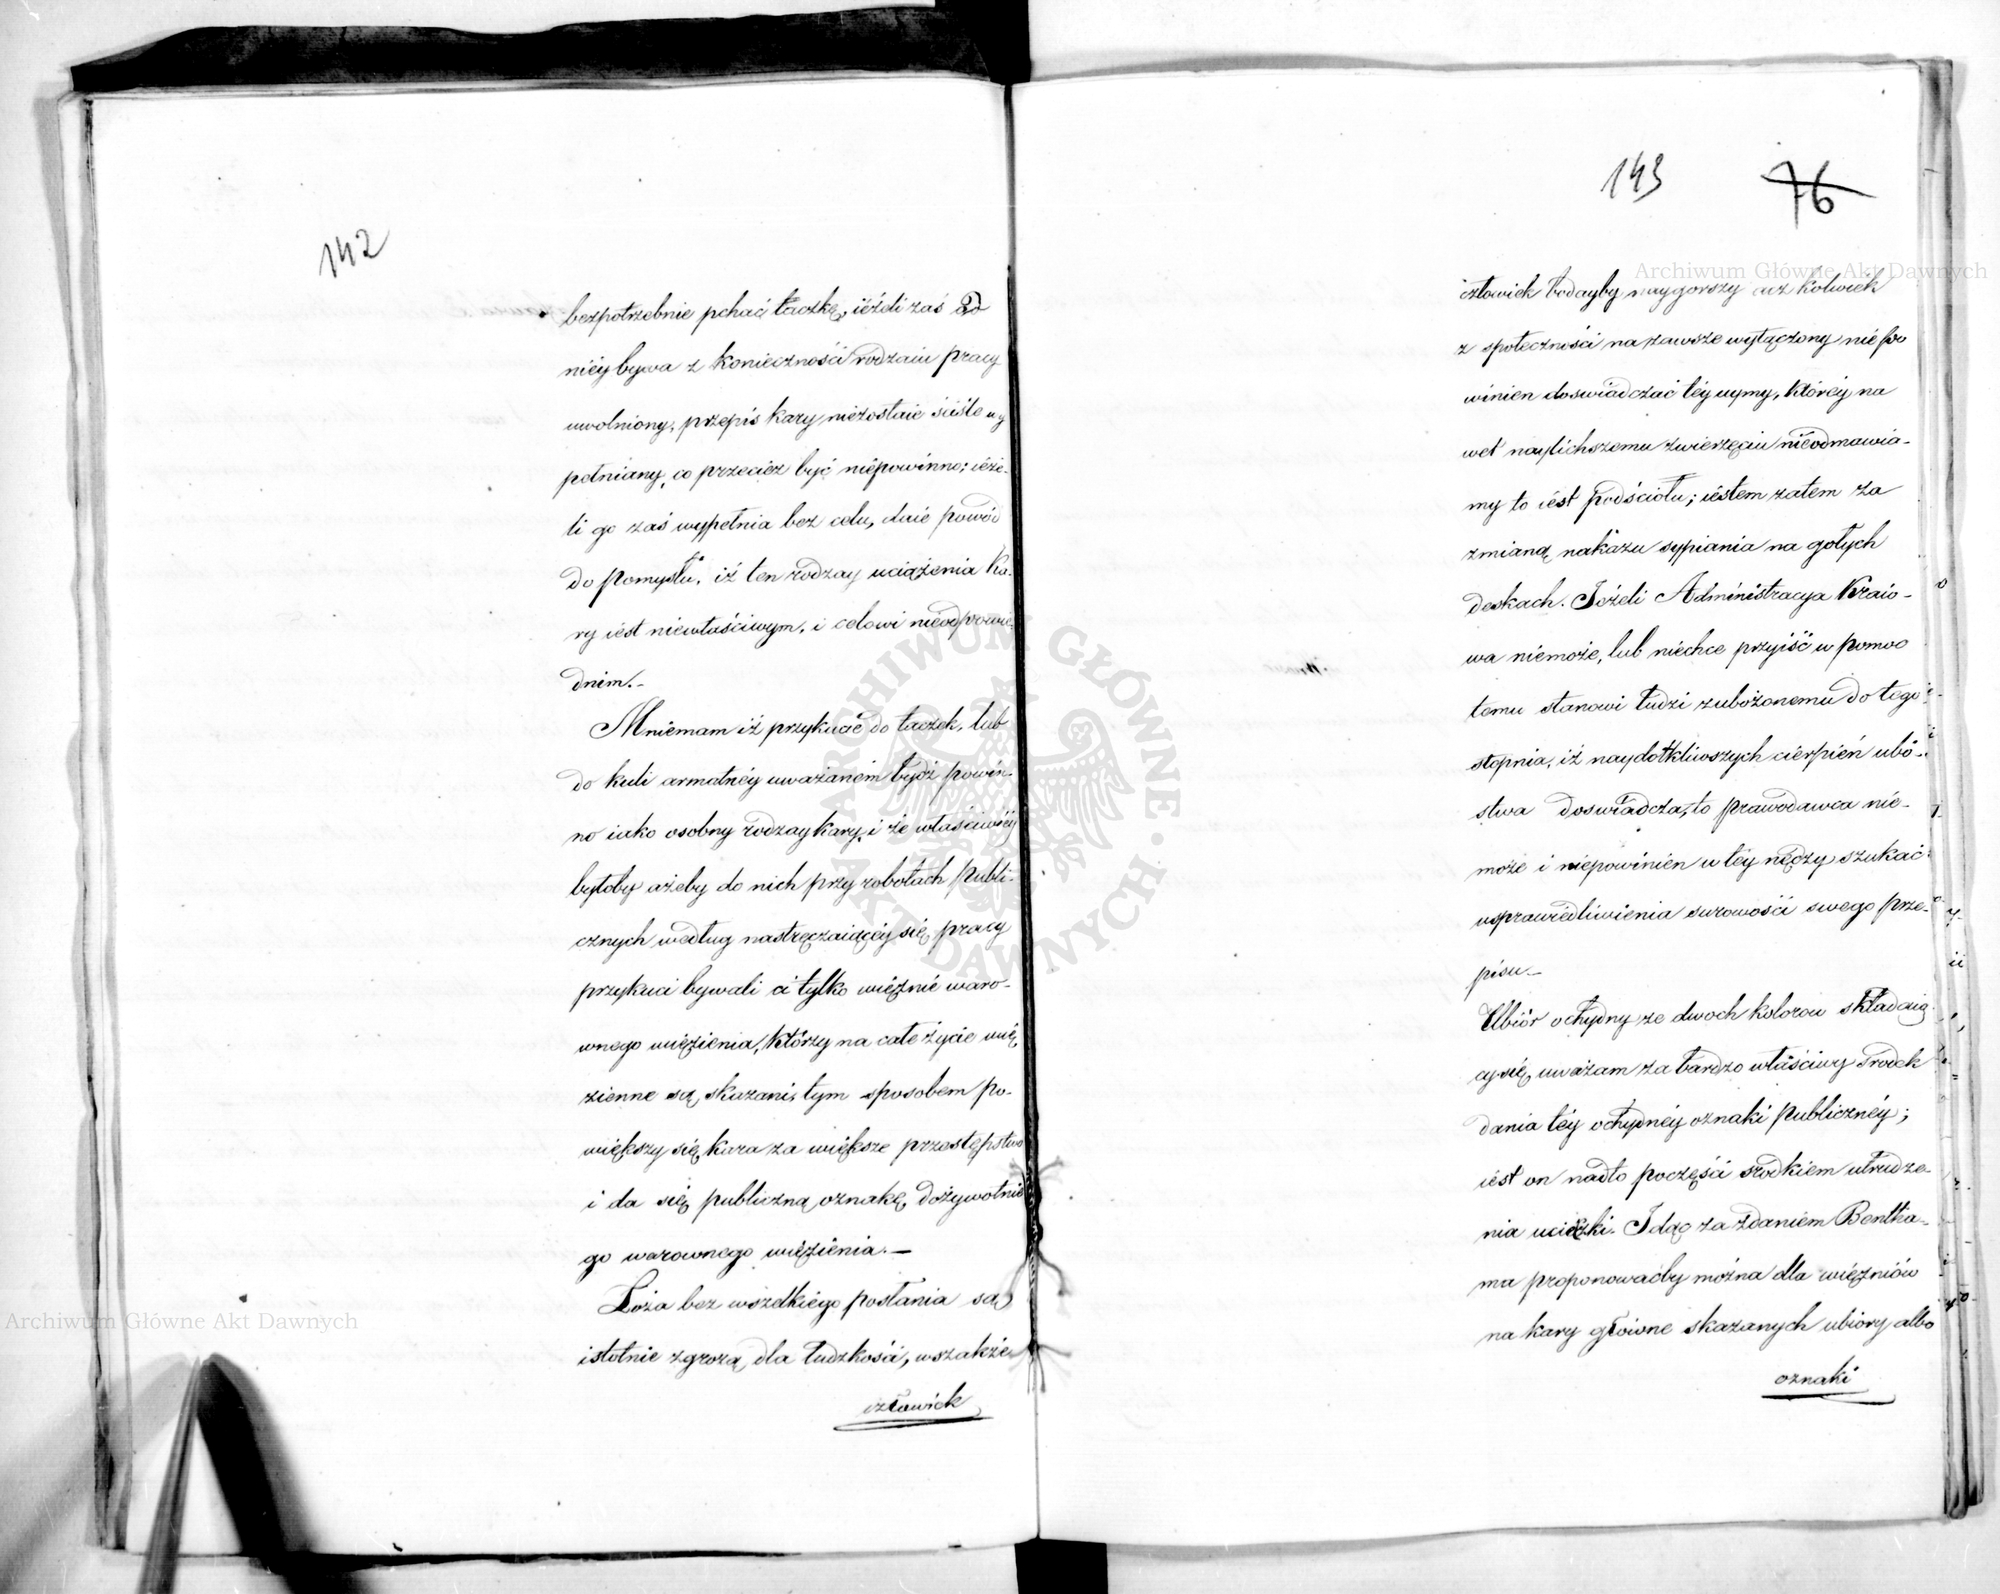 142
bezpotrzebnie pchać taczkę, ieżeli zaś od
niéy bywa z konieczności rodzaiu pracy
uwolniony, przepis kary niezostaie ściśle wy
pełniany, co przecież być niepowinno; ieże-
li go zaś wypełnia bez celu, daie powód
do pomysłu, iż ten rodzay uciążenia ka-
ry iest niewłaściwym, i celowi nieodpowie-
dnim.-
Mniemam iż przykucie do taczek, lub
do kuli armatnéy uważaném bydź powin-
no iako osobny rodzay kary, i że właściwiéy
byłoby ażeby do nich przy robotach publi-
cznych według nastręczaiącéy się pracy
przykuci bywali ci tylko więźnie waro-
wnego więzienia, którzy na całe życie wię
zienne są skazani, tym sposobem po-
większy się kara za większe przestępstwo
i da się publiczną oznakę dożywotnie
go warownego więzienia.—
Łoża bez wszelkiego posłania są
istotnie zgrozą dla ludzkości, wszakże
człowiek
143 76
człowiek bodayby naygorszy acz kolwiek
z społeczności na zawsze wyłączony nie po
winien doswiadczać téy uymy, któréy na
wet naylichszemu zwierzęciu nieodmawia-
my to iest podściołu; iestem zatem za
zmianą nakazu sypiania na gołych
deskach. Jeżeli Administracya Kraio-
wa niemoże, lub niechce przyiść w pomoc
temu stanowi ludzi zubożonemu do tego
stopnia, iż naydotkliwszych cierpień ubó-
stwa doswiadcza, to prawodawca nie-
może i niepowinien w téy nędzy szukać
usprawiedliwienia surowości swego prze-
pisu.-
Ubiór ochydny ze dwoch kolorow składaią
cy się uważam za bardzo właściwy srodek
dania téy ochydnéy oznaki publicznéy;
iest on nadto poczęści srodkiem utrudze-
nia ucieczki. Idąc za zdaniem Bentha-
ma proponowaćby można dla więzniów
na kary główne skazanych ubiory albo
oznaki
Archiwum Główne Akt Dawnych
Archiwum Główne Akt Dawnych
ARCHIWUM GŁÓWNE AKT DAWNYCH